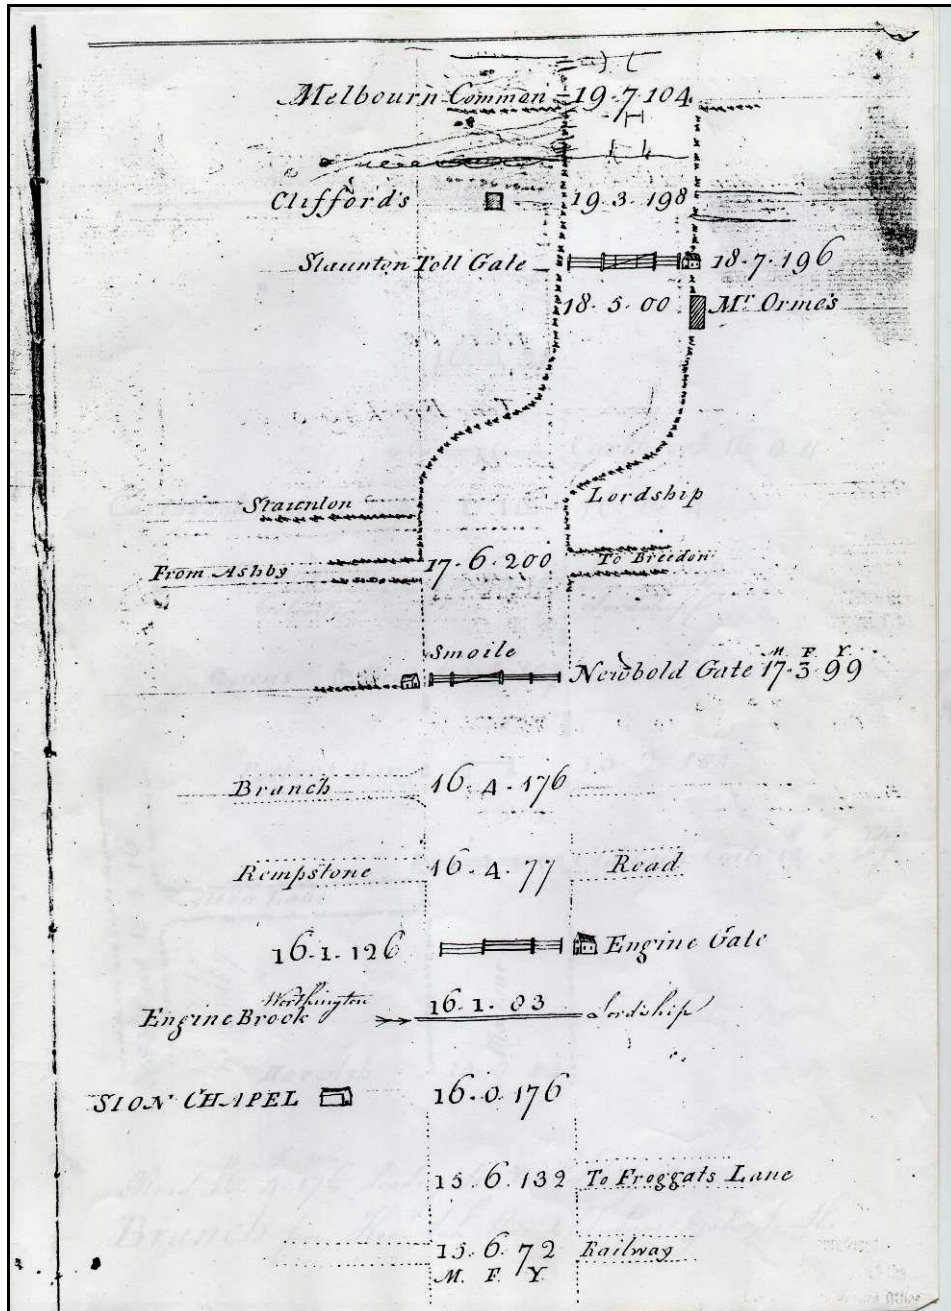 Melbourn Common 19.7.104
Clifford's 19.3.198
Staunton Toll Gate 18.7.196
18.5.00 Mr Orme's
Lordship
Staunton
From Ashby 17.6.200 To Breedon
Smoile
M F Y
Newbold Gate 17.3.99
Branch 16.4.176
Rempstone 16.4.77 Road
16.1.126 Engine Gate
Worthington
Engine Brook 16.1.03 Lordship
SION CHAPEL 16.0.176
15.6.132 To Froggats Lane
15.6.72 Railway
M. F. Y.